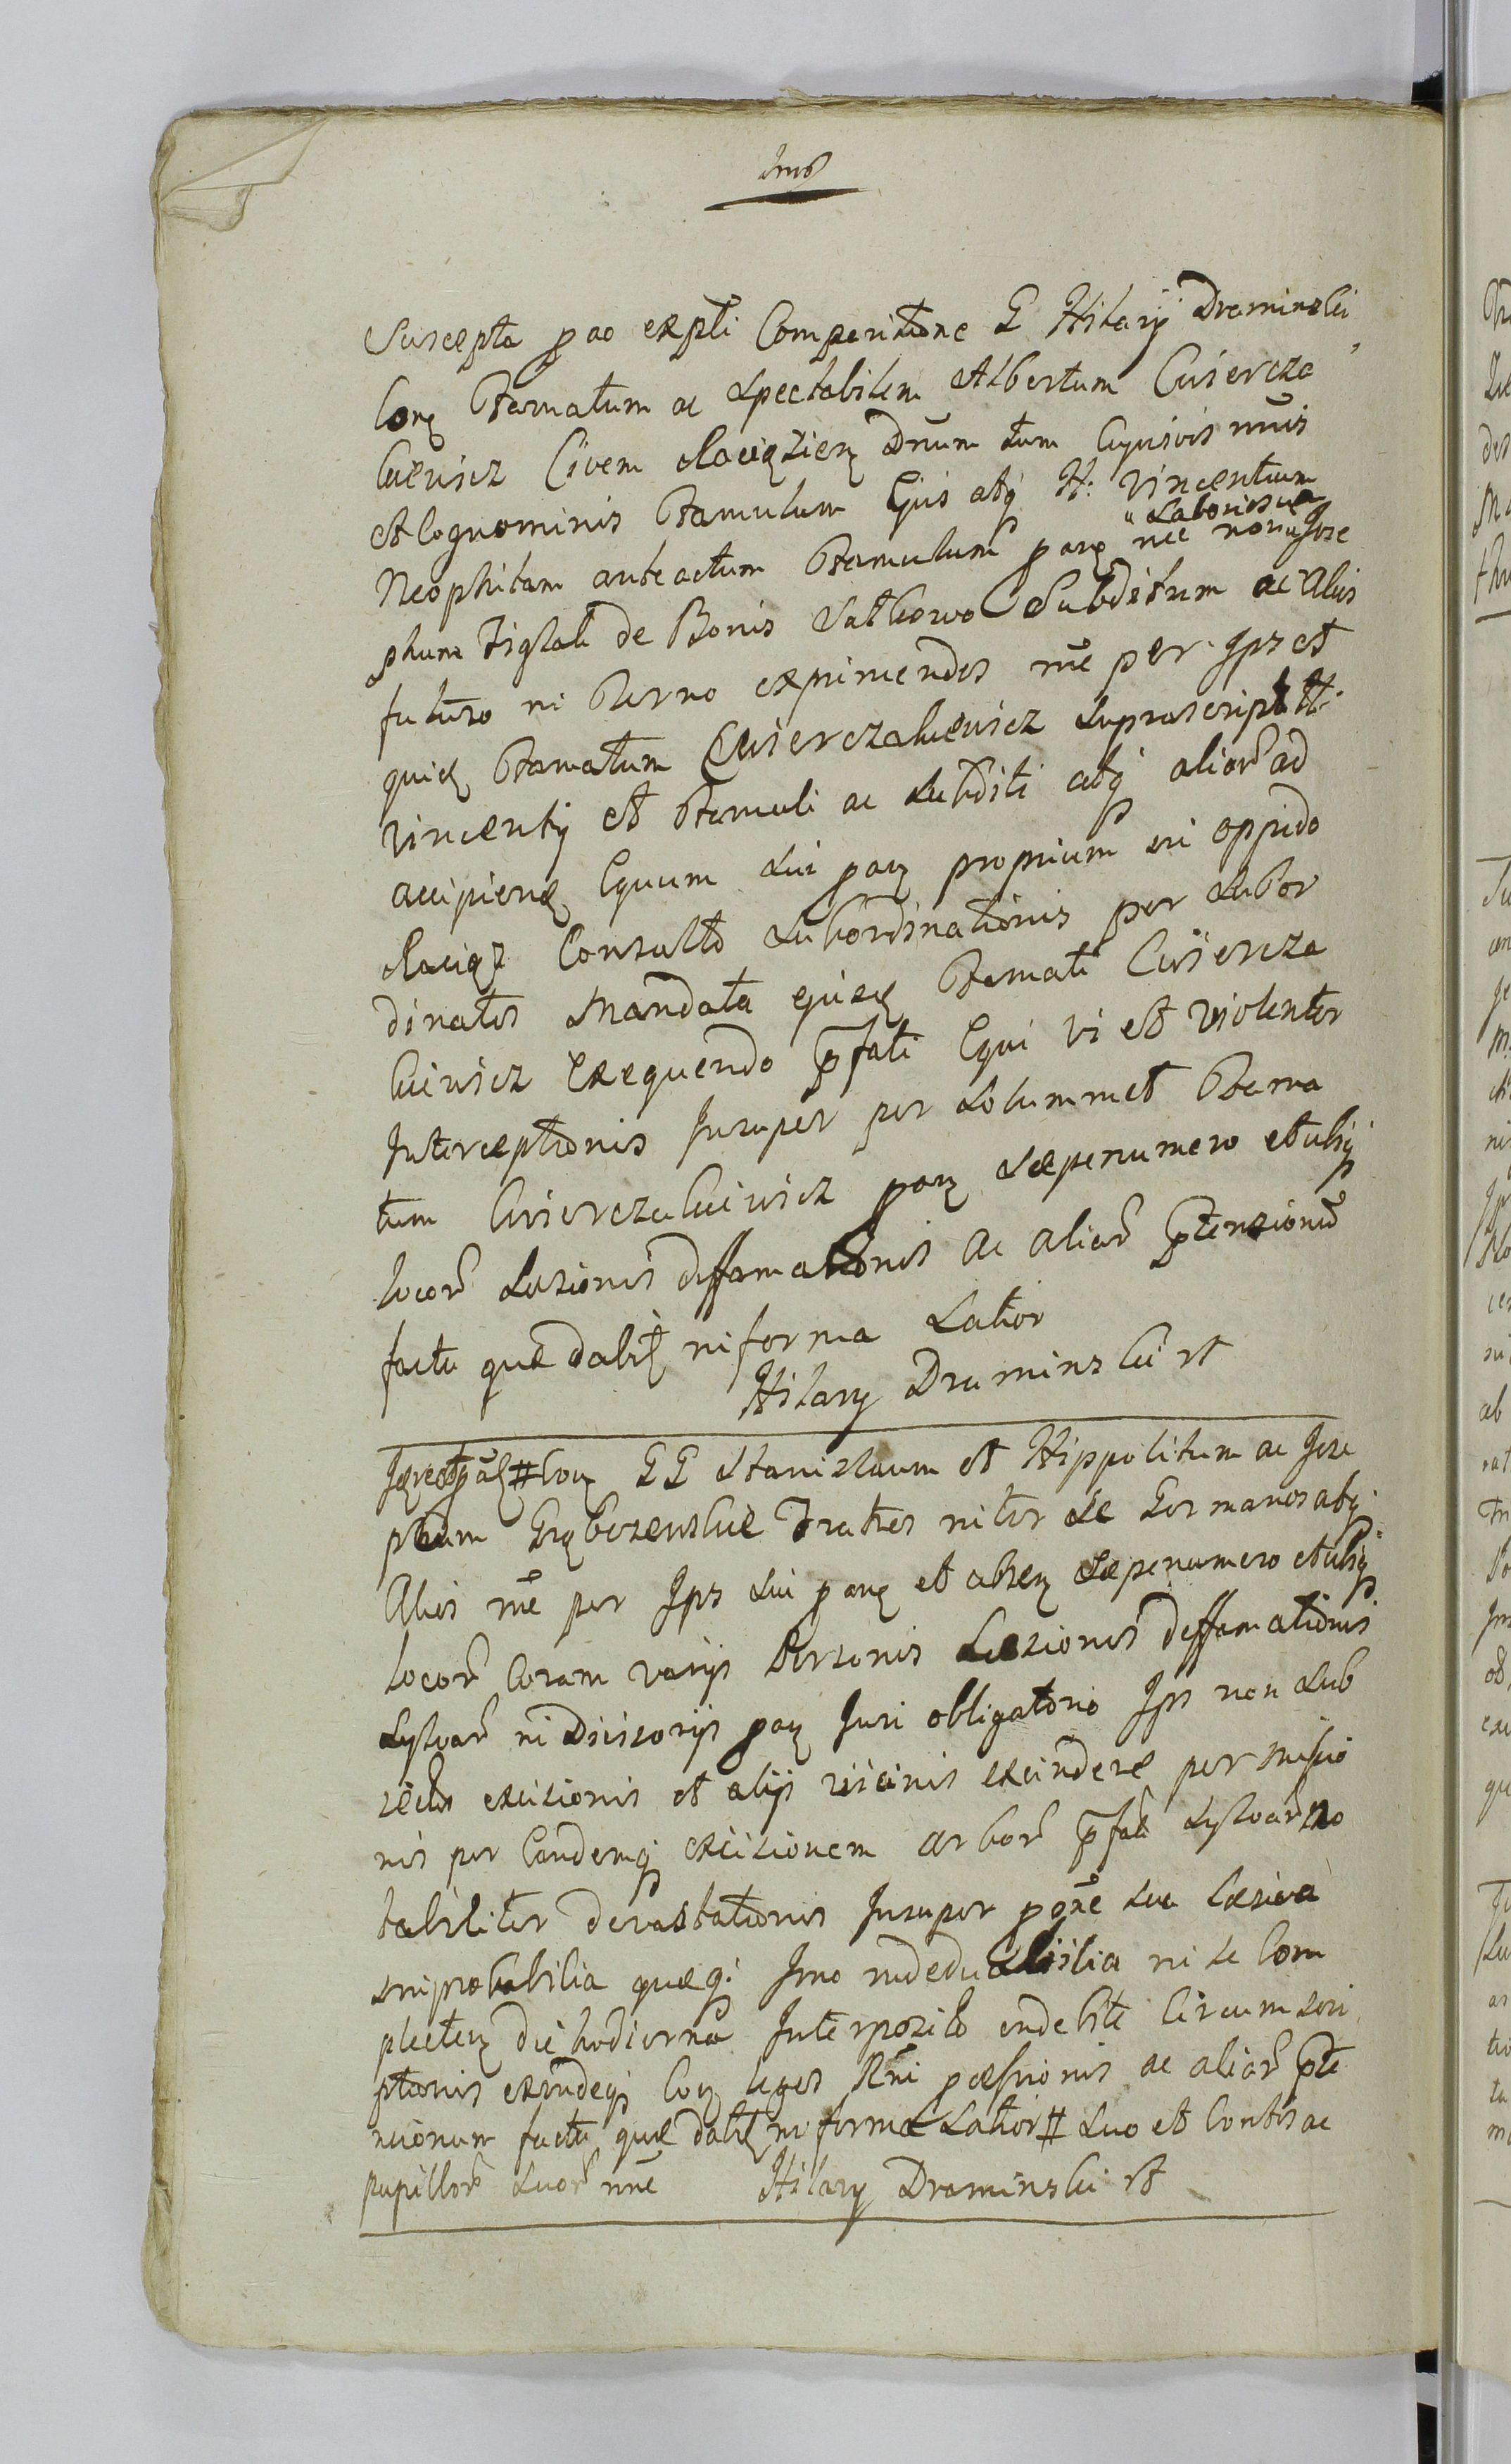 Suscepta pao expti Comparitione G Hilary Draminski
Conq Famatum ac Spectabilem Albertum Cwiercza
kiewicz Civem Raciązien Dnum tum Cujusvis nuis
et Cognominis Famulum Ejus atq H: Vincentium
Neophitam anteactum Famulum parq nec non "Laboriosum" Jose
phum Figlak de Bonis Sutkowo Subditum ac Alios
futuro in Termo exprimendos rne per Ips et
quidq Famatum Cwierczakiewicz Suprascript H.
Vincentij et Famuli ac Subditi atq alior ad
accipienq Equum Sui parq proprium in oppido
Raciąz Consulto Subordinationis per Subor
dinatos Mandata ejusq Famati Cwiercza
kiewicz Exequendo pfati Equi vi et violenter
Interceptionis Insuper per Solummet Fama
tum Cwierczakiewicz parq Saepenumero et ubiq
locor Laesionis diffamationis ac alior ptensionu
facta quae dabit in forma Latior
Hilary Draminski rt
# Conq GG Stanislaum et Hippolitum ac Jose
phum Grąbczewskie Fratres inter Se Germanos atq
Alios rne per Ips Sui parq et absen Saepenumero et ubiq
locor Coram varijs Personis Laesionis diffamationis
Sylvar in Divisorijs parq Juri obligatorio Ips non Sub
jectis excisionis et alijs vicinis excindere permissio
nis per Eandemq excisionem arbor pfati Sylvar no
tabiliter devastationis Insuper porre Sua Laesiva
improbabilia quaeq: Imo in se Com
plecten die hodierna Interposito indebite Circumscri
ptionis exindeq Conq leges Rni pcessionis ac alior pte
nsionum facta quae dabit in forma Latior # Suo et Contis ac
pupillor Suor nne Hilary Draminski rt